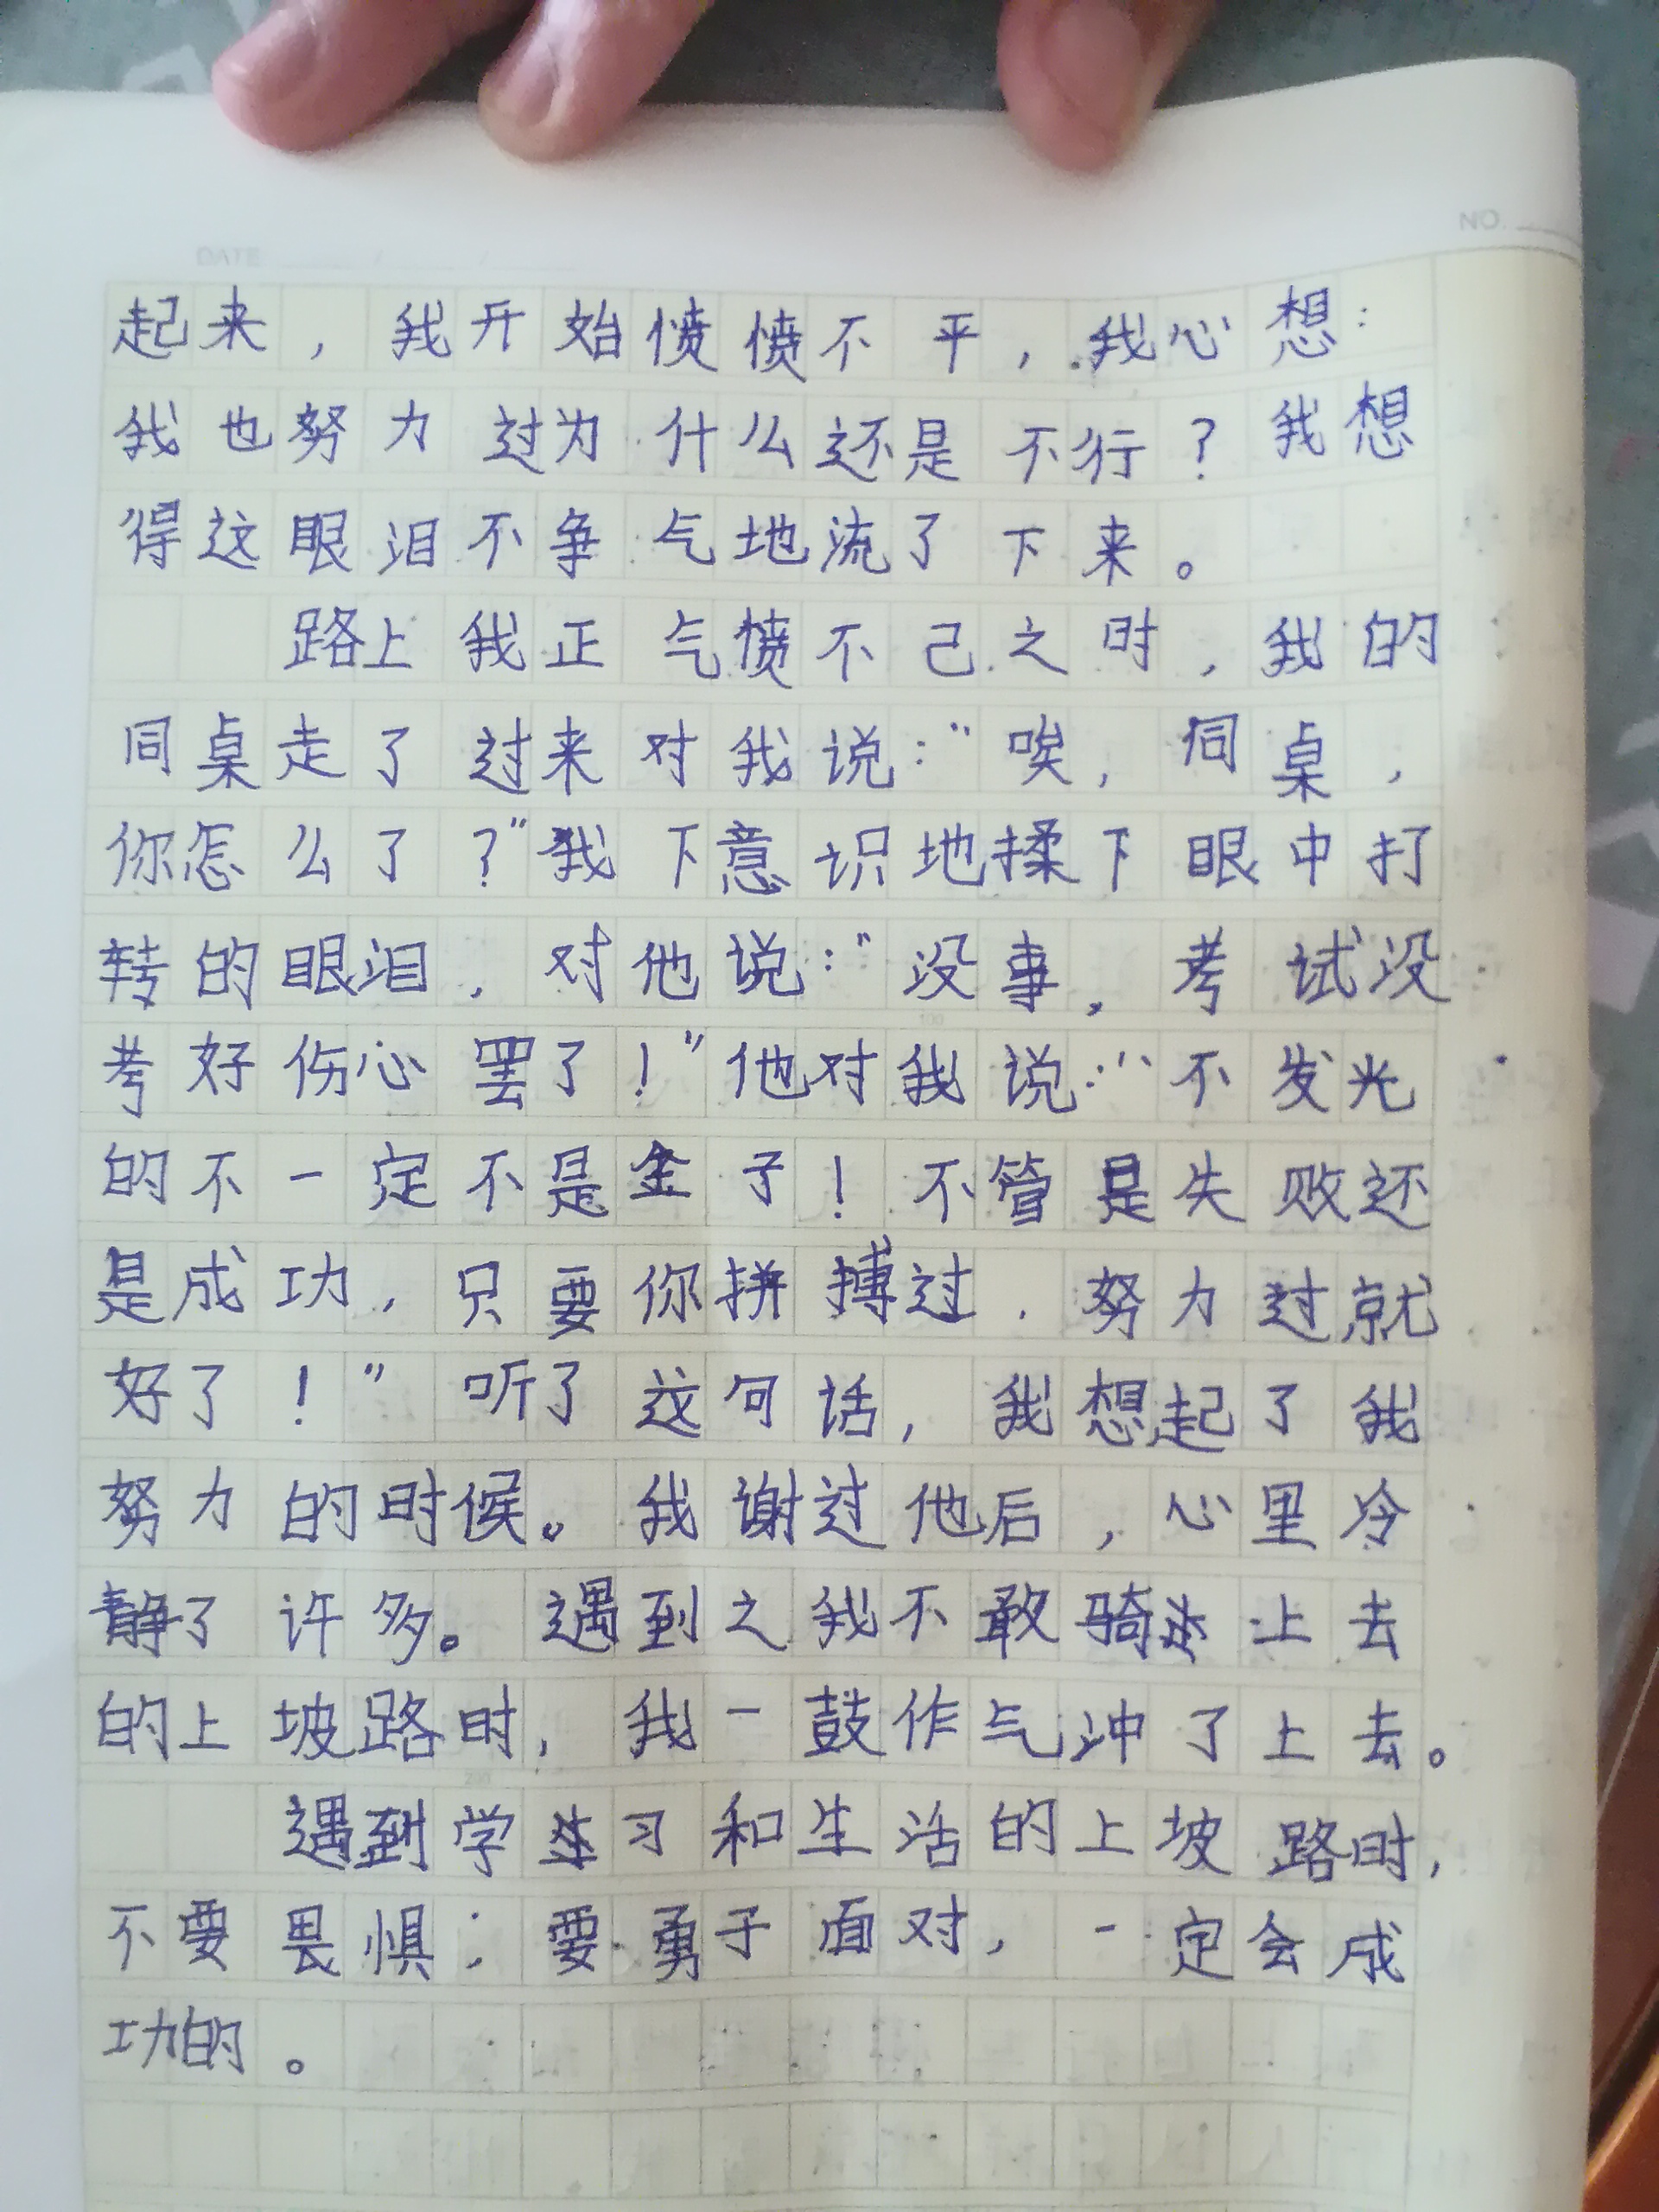 DATE / /
NO.
起来，我开始愤愤不平，我心想：
我也努力过为什么还是不行？我想
得这眼泪不争气地流了下来。
路上我正气愤不己之时，我的
同桌走了过来对我说：“唉，同桌，
你怎么了？”我下意识地揉下眼中打
转的眼泪，对他说：“没事，考试没
考好伤心罢了！”他对我说：“不发光
的不一定不是金子！不管是失败还
是成功，只要你拼搏过，努力过就
好了！”听了这句话，我想起了我
努力的时候。我谢过他后，心里冷
静了许多。遇到之我不敢骑上去
的上坡路时，我一鼓作气冲了上去。
遇到学习和生活的上坡路时，
不要畏惧；要勇于面对，一定会成
功的。